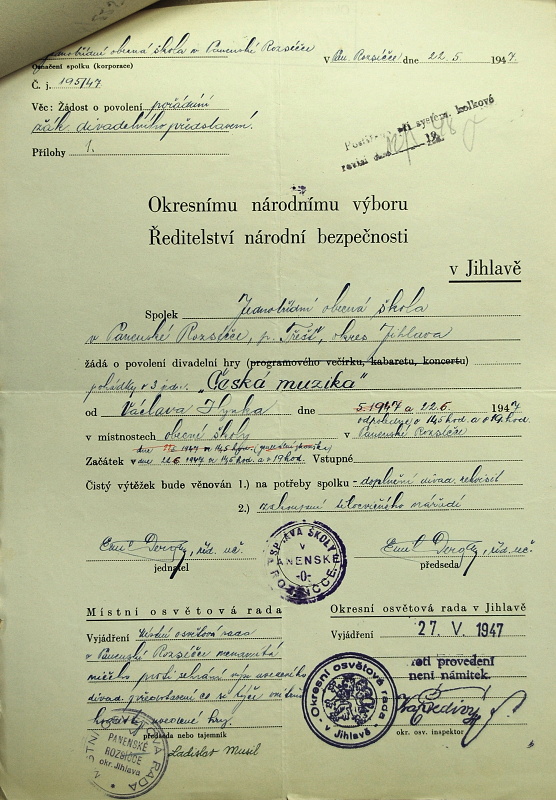 Jednotřídní obecná škola v Panenské Rozsíčce
Označení spolku (korporace)
V Pan. Rozsíčce dne 22.5. 1947
Č. j. 195/47
Věc: Žádost o povolení pořádání
žák. divadelního představení.
Přílohy 1.
Okresnímu národnímu výboru
Ředitelství národní bezpečnosti
v Jihlavě
Spolek Jednotřídní obecná škola
v Panenské Rozsíčce, p. Třešť, okres Jihlava
žádá o povolení divadelní hry (programového večírku, kabaretu, koncertu)
pohádky o 3 jedn. „Česká muzika"
od Václava dne 5. 1947 a 22.6. 1947
odpoledne o ½5 hod. a o 19 hod.
v místnostech obecné školy v Panenské Rozsíčce
Začátek v dne 22.6. 1947 o ½5 hod. a v 19 hod. Vstupné
Čistý výtěžek bude věnován 1.) na potřeby spolku - doplnění divad. rekvisit
2.) zakoupení tělocvičného nářadí
SPRÁVA ŠKOLY
V
PANENSKÉ
-0-
ROZSÍČCE
Emil říd. uč. Emil říd. uč.
jednatel předseda
Místní osvětová rada
Okresní osvětová rada v Jihlavě
Vyjádření Místní osvětová rada
v Panenské Rozsíčce nenamítá
ničeho proti sehrání výše uvedeného
divad. představení co se týče
uvedené hry.
předseda nebo tajemník
Ladislav Musil
MÍSTNÍ OSVĚTOVÁ RADA
PANENSKÉ
ROZSÍČCE
okr. Jihlava
Vyjádření 27. V. 1947
proti provedení
není námitek.
Okresní osvětová rada
v Jihlavě
okr. osv. inspektor